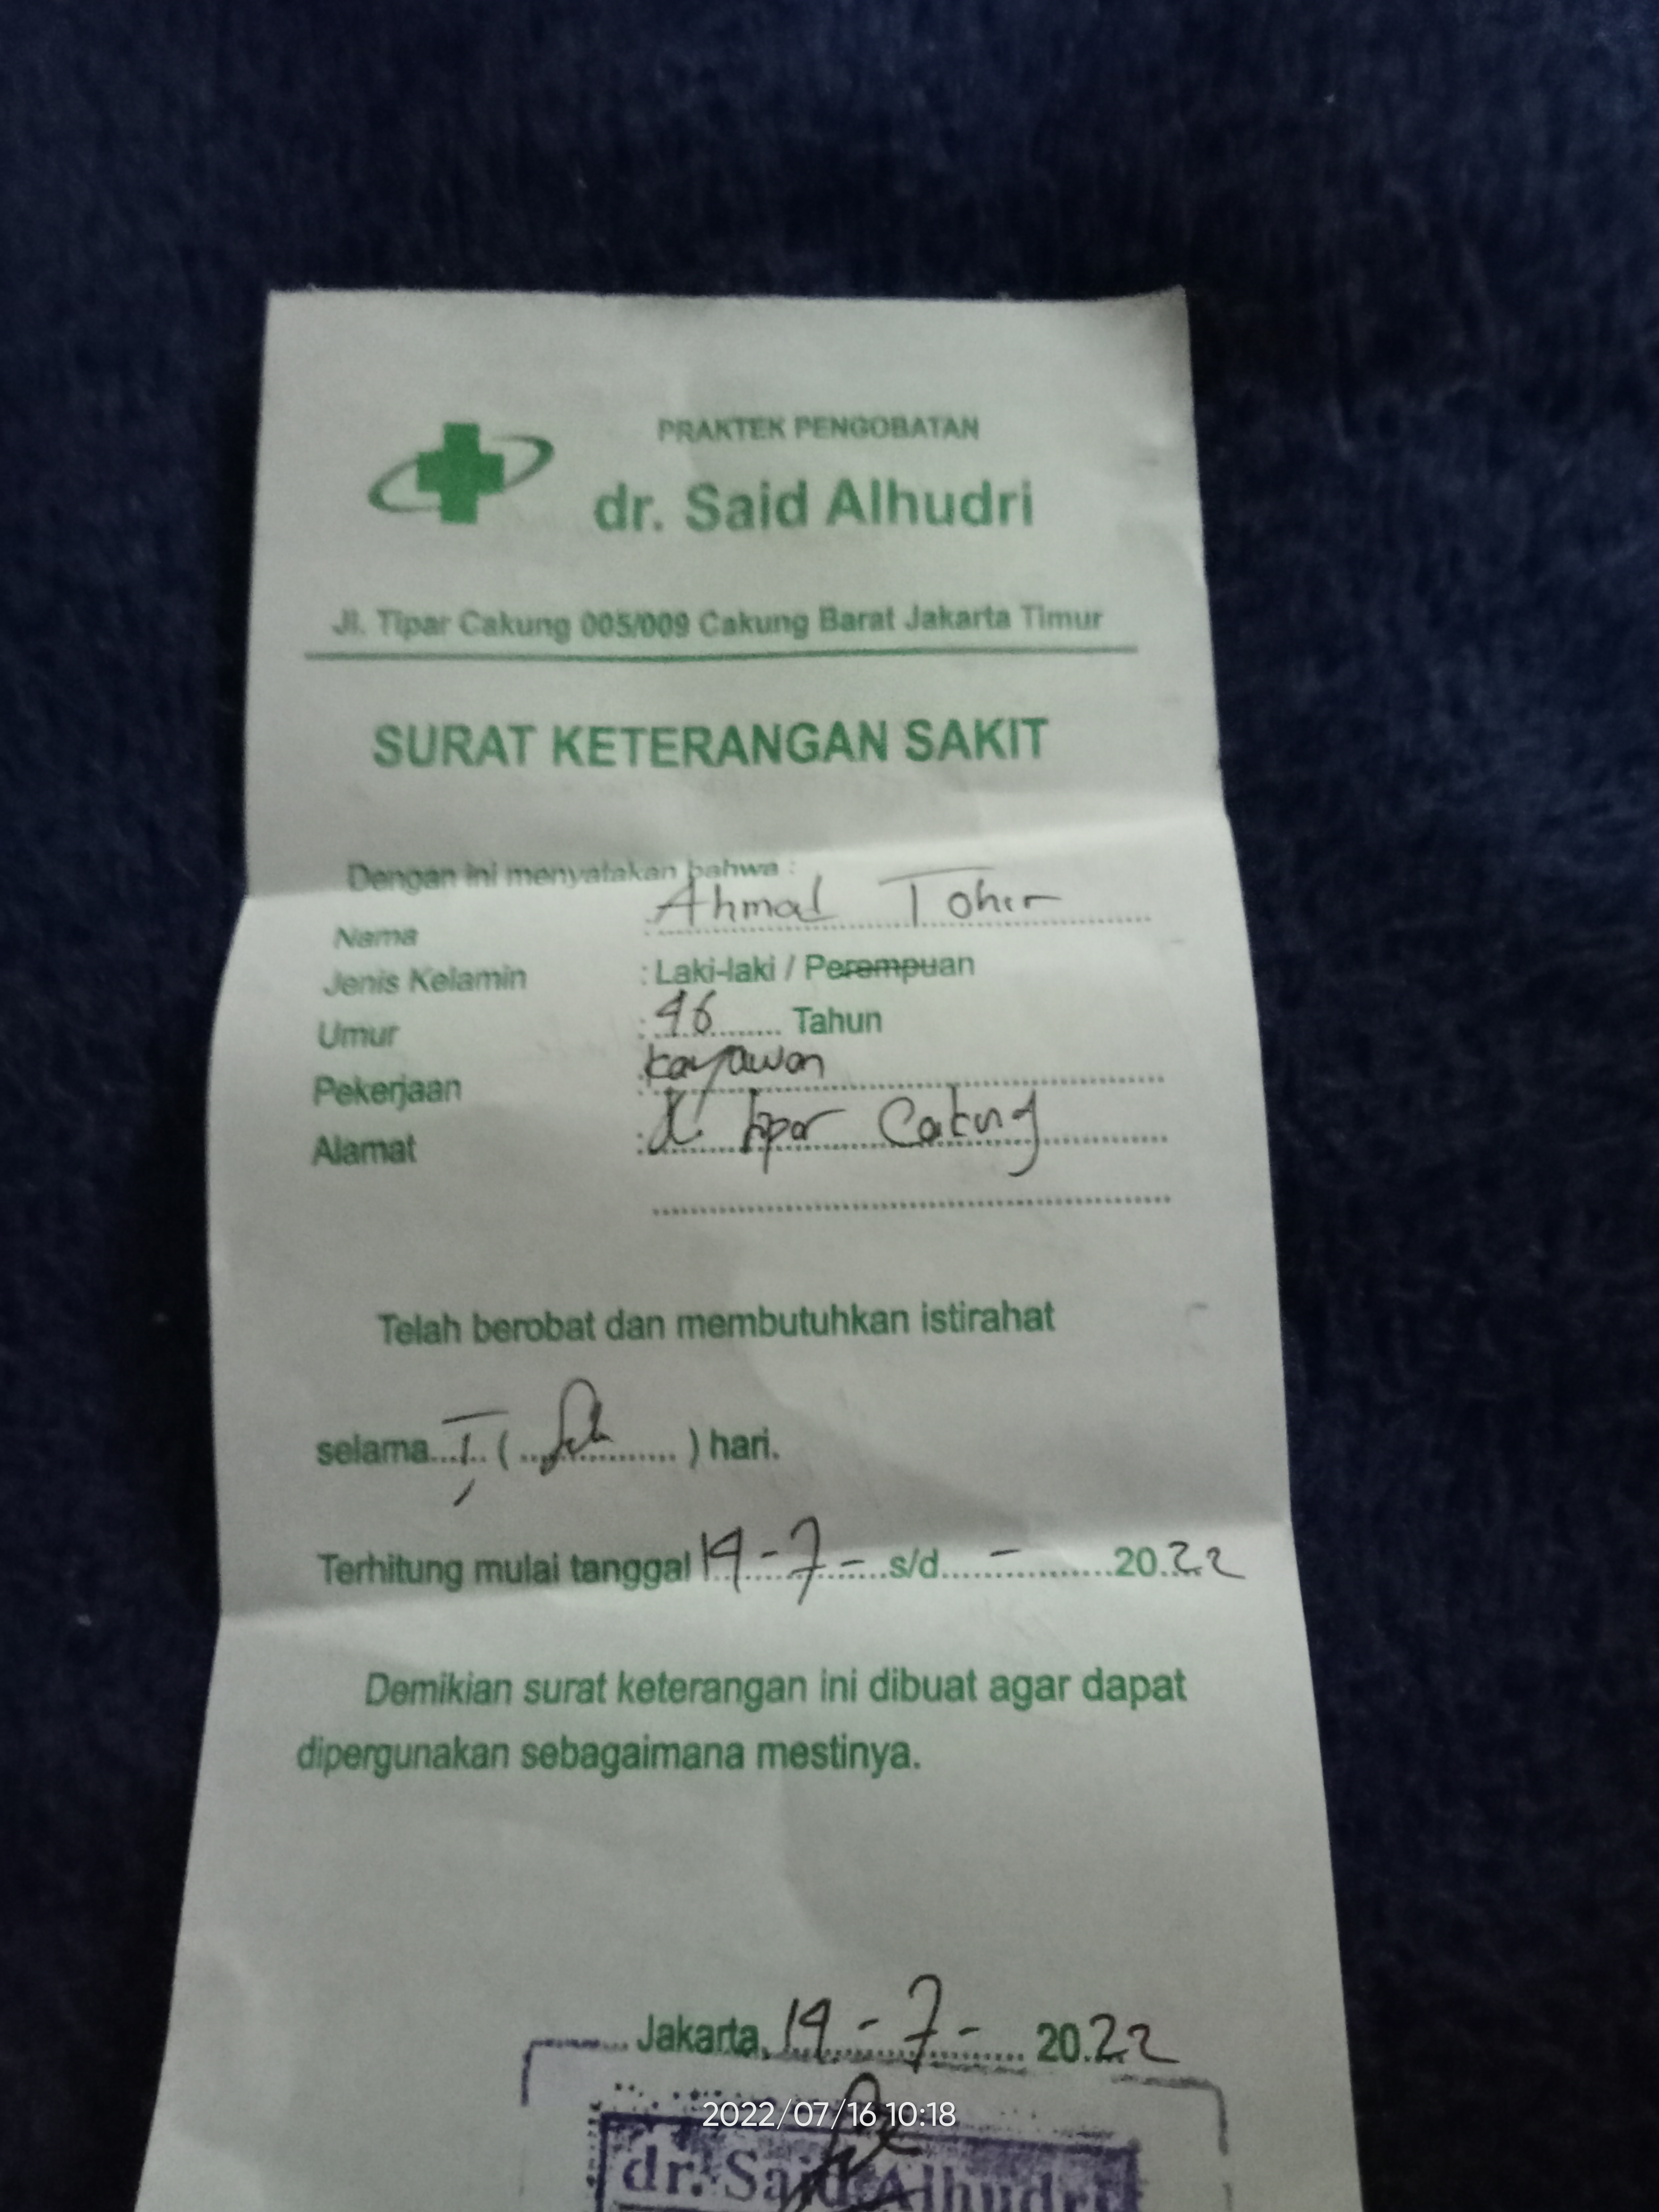 PRAKTEK PENGOBATAN
dr. Said Alhudri
Jl. Tipar Cakung 005/009 Cakung Barat Jakarta Timur
SURAT KETERANGAN SAKIT
Dengan ini menyatakan bahwa :
Nama Ahmad Tohir
Jenis Kelamin : Laki-laki / Perempuan
Umur : 46 Tahun
Pekerjaan : Kayawan
Alamat : Jl Tipar Cakung
Telah berobat dan membutuhkan istirahat
selama I ( ) hari.
Terhitung mulai tanggal 14-7- s/d - 2022
Demikian surat keterangan ini dibuat agar dapat
dipergunakan sebagaimana mestinya.
Jakarta, 14-7- 2022
2022/07/16 10:18
dr. Said Alhudri